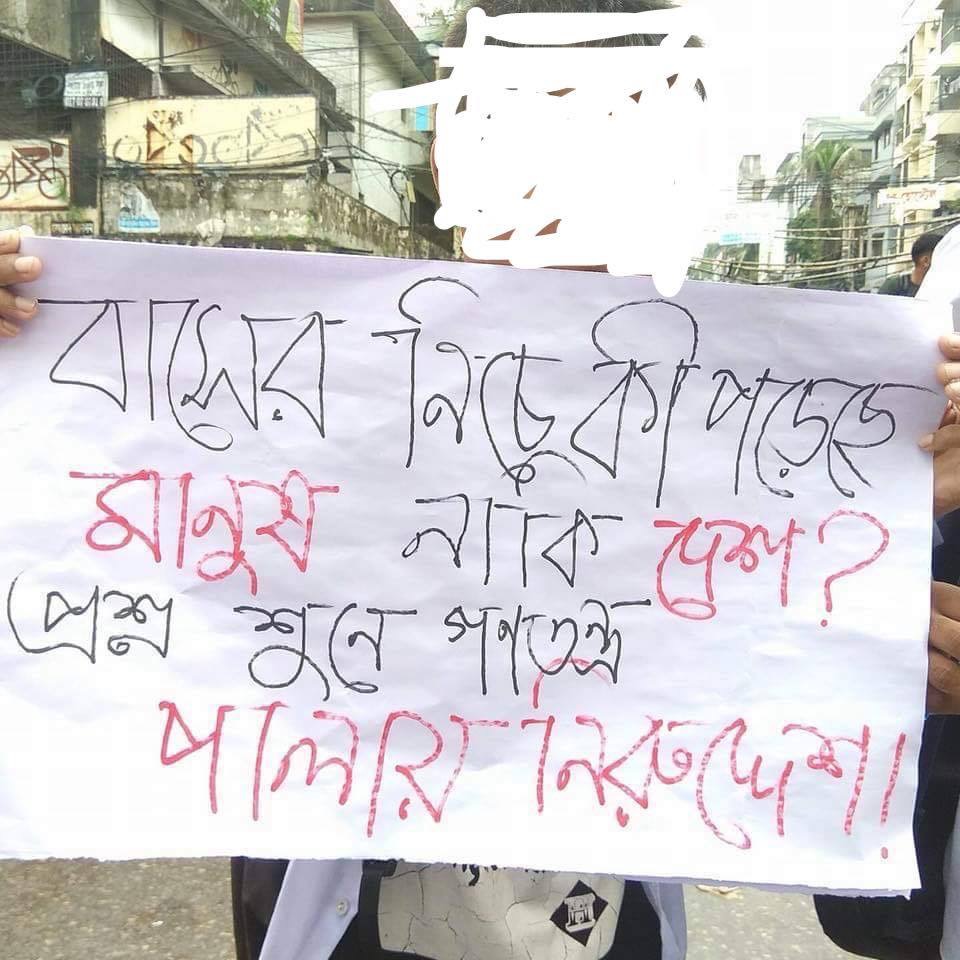 বাসের নিচে কী পড়েছে
মানুষ নাকি দেশ?
প্রশ্ন শুনে গণতন্ত্র
পালায় নিরুদ্দেশ!